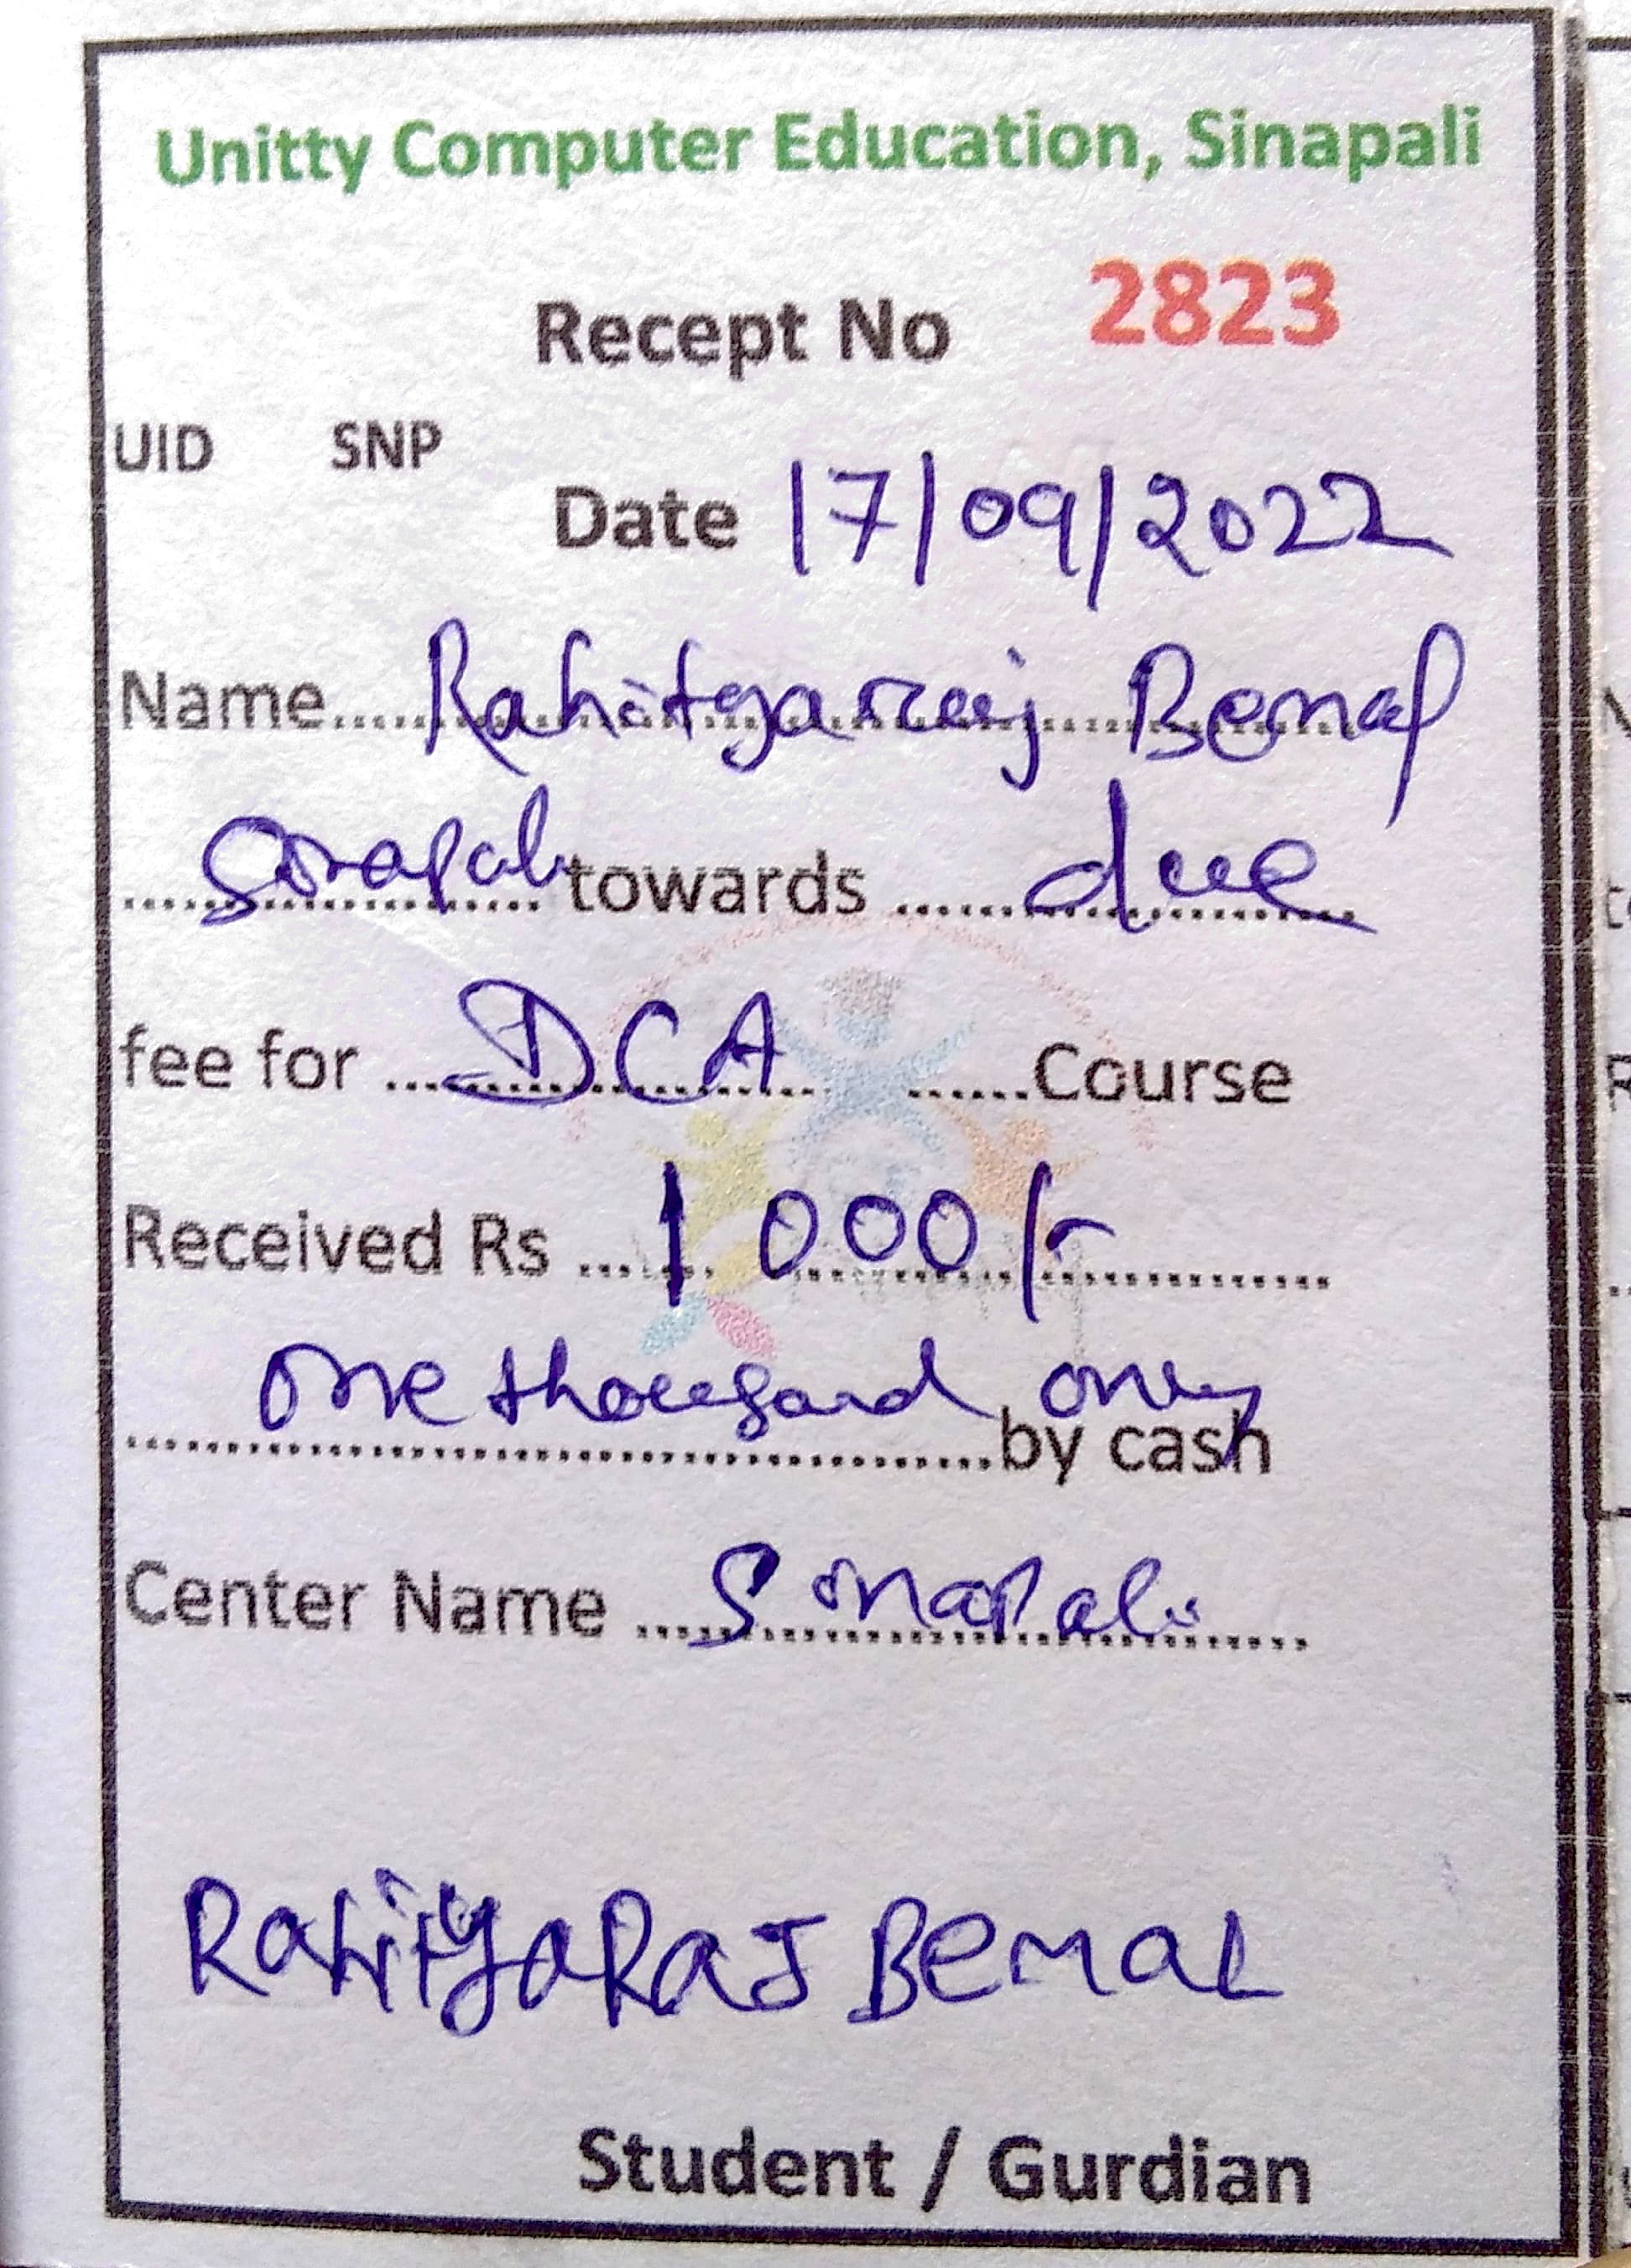 Unitty Computer Education, Sinapali
Recept No 2823
UID SNP
Date 17/09/2022
Name.....Rahityaraj Bemal
Sinapali towards ..... due
fee for ... DCA ......Course
Received Rs ... 1000/-
One thousand only
by cash
Center Name ... Sinapali
RahityaRaJ BemaL
Student / Gurdian